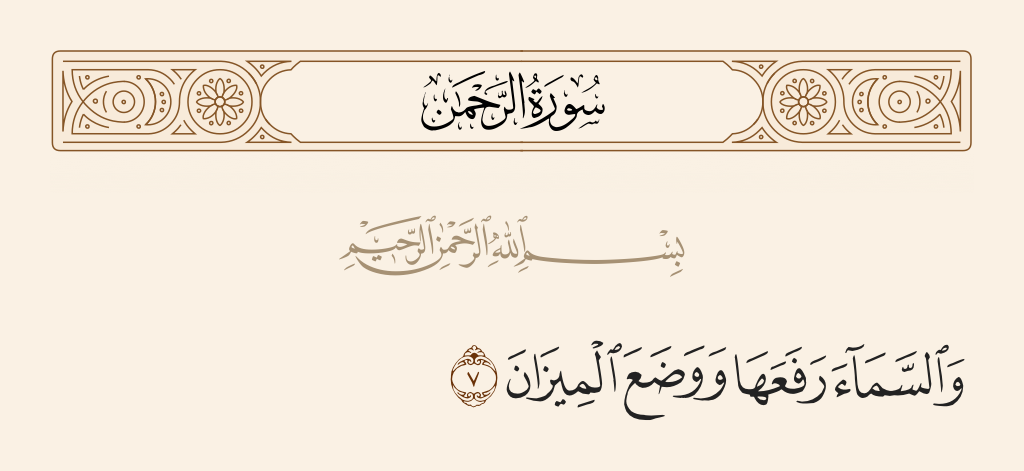 سُورَةُ الرَّحْمَٰن
بِسْمِ ٱللَّهِ ٱلرَّحْمَٰنِ ٱلرَّحِيمِ
وَٱلسَّمَآءَ رَفَعَهَا وَوَضَعَ ٱلْمِيزَانَ ٧